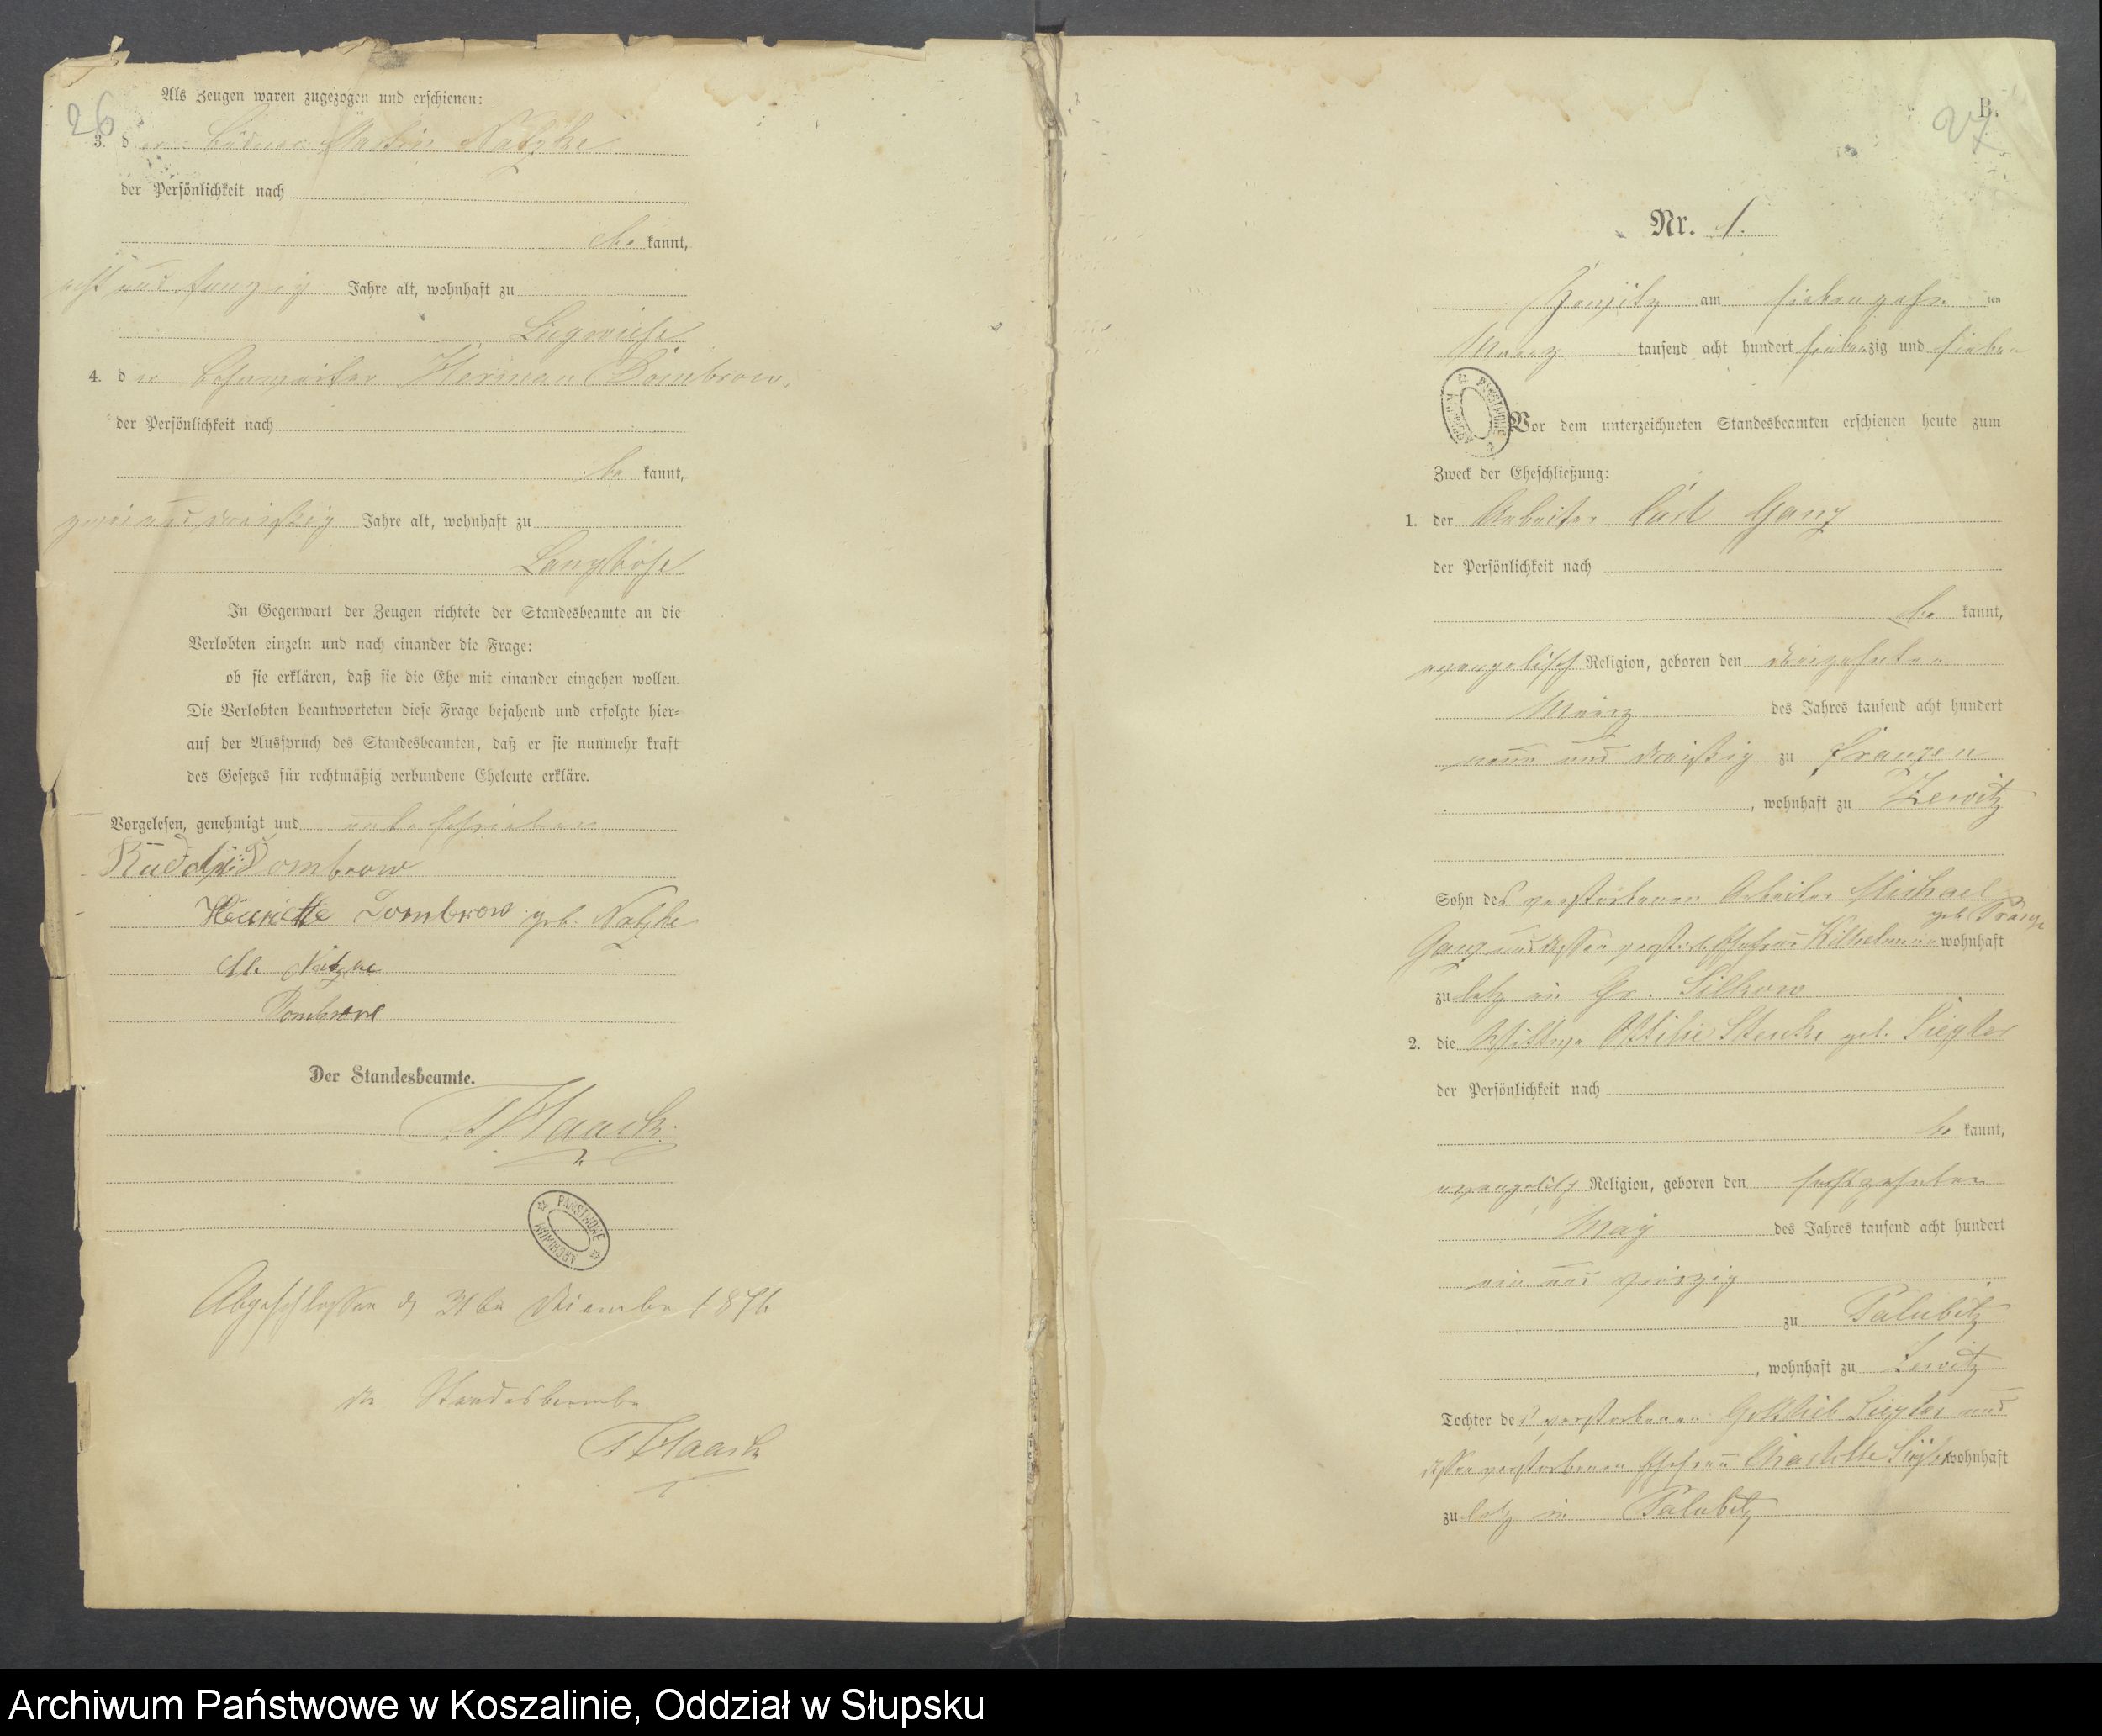 26
Als Zeugen waren zugezogen und erschienen:
3. der Büdner Martin Natzke
der Persönlichkeit nach
be kannt,
acht und funzig Jahre alt, wohnhaft zu
Lugewiese
4. der Herman Dombrow.
der Persönlichkeit nach
be kannt,
zwei und dreißig Jahre alt, wohnhaft zu
Langeböse
In Gegenwart der Zeugen richtete der Standesbeamte an die
Verlobten einzeln und nach einander die Frage:
ob sie erklären, daß sie die Ehe mit einander eingehen wollen.
Die Verlobten beantworteten diese Frage bejahend und erfolgte hier=
auf der Ausspruch des Standesbeamten, daß er sie nunmehr kraft
des Gesetzes für rechtmäßig verbundene Eheleute erkläre.
Vorgelesen, genehmigt und unterschrieben
Rudolf Dombrow
Henriette Dombrow geb. Natzke
M. Natzke
Dombrow
Der Standesbeamte.
Haack.
PAŃSTWOWE ARCHIWUM
Abgeschlossen d 31ten Dezember 1876
der Standesbeamte
Haack
B.
27
Nr. 1.
Zewitz am siebenzehn ten
Maerz tausend acht hundert siebenzig und sieben
PAŃSTWOWE ARCHIWUM
Vor dem unterzeichneten Standesbeamten erschienen heute zum
Zweck der Eheschließung:
1. der Arbeiter Carl Ganz
der Persönlichkeit nach
be kannt,
evangelisch Religion, geboren den dreizehnten
Maerz des Jahres tausend acht hundert
neun und dreißig zu Franzen
, wohnhaft zu Zewitz
Sohn des verstorbenen Arbeiter Michael
geb. Prange
Ganz und dessen verstorb. Ehefrau Wilhelmine wohnhaft
zu letz in Gr. Silkow
2. die Wittwe Ottilie Stenke geb. Siegler
der Persönlichkeit nach
be kannt,
evangelisch Religion, geboren den sechszehnten
May des Jahres tausend acht hundert
ein und vierzig
zu Palubitz
, wohnhaft zu Zewitz
Tochter des verstorbenen Gottlieb Siegler und
dessen verstorbenen Ehefrau Charlotte wohnhaft
zu letz in Palubitz
Archiwum Państwowe w Koszalinie, Oddział w Słupsku